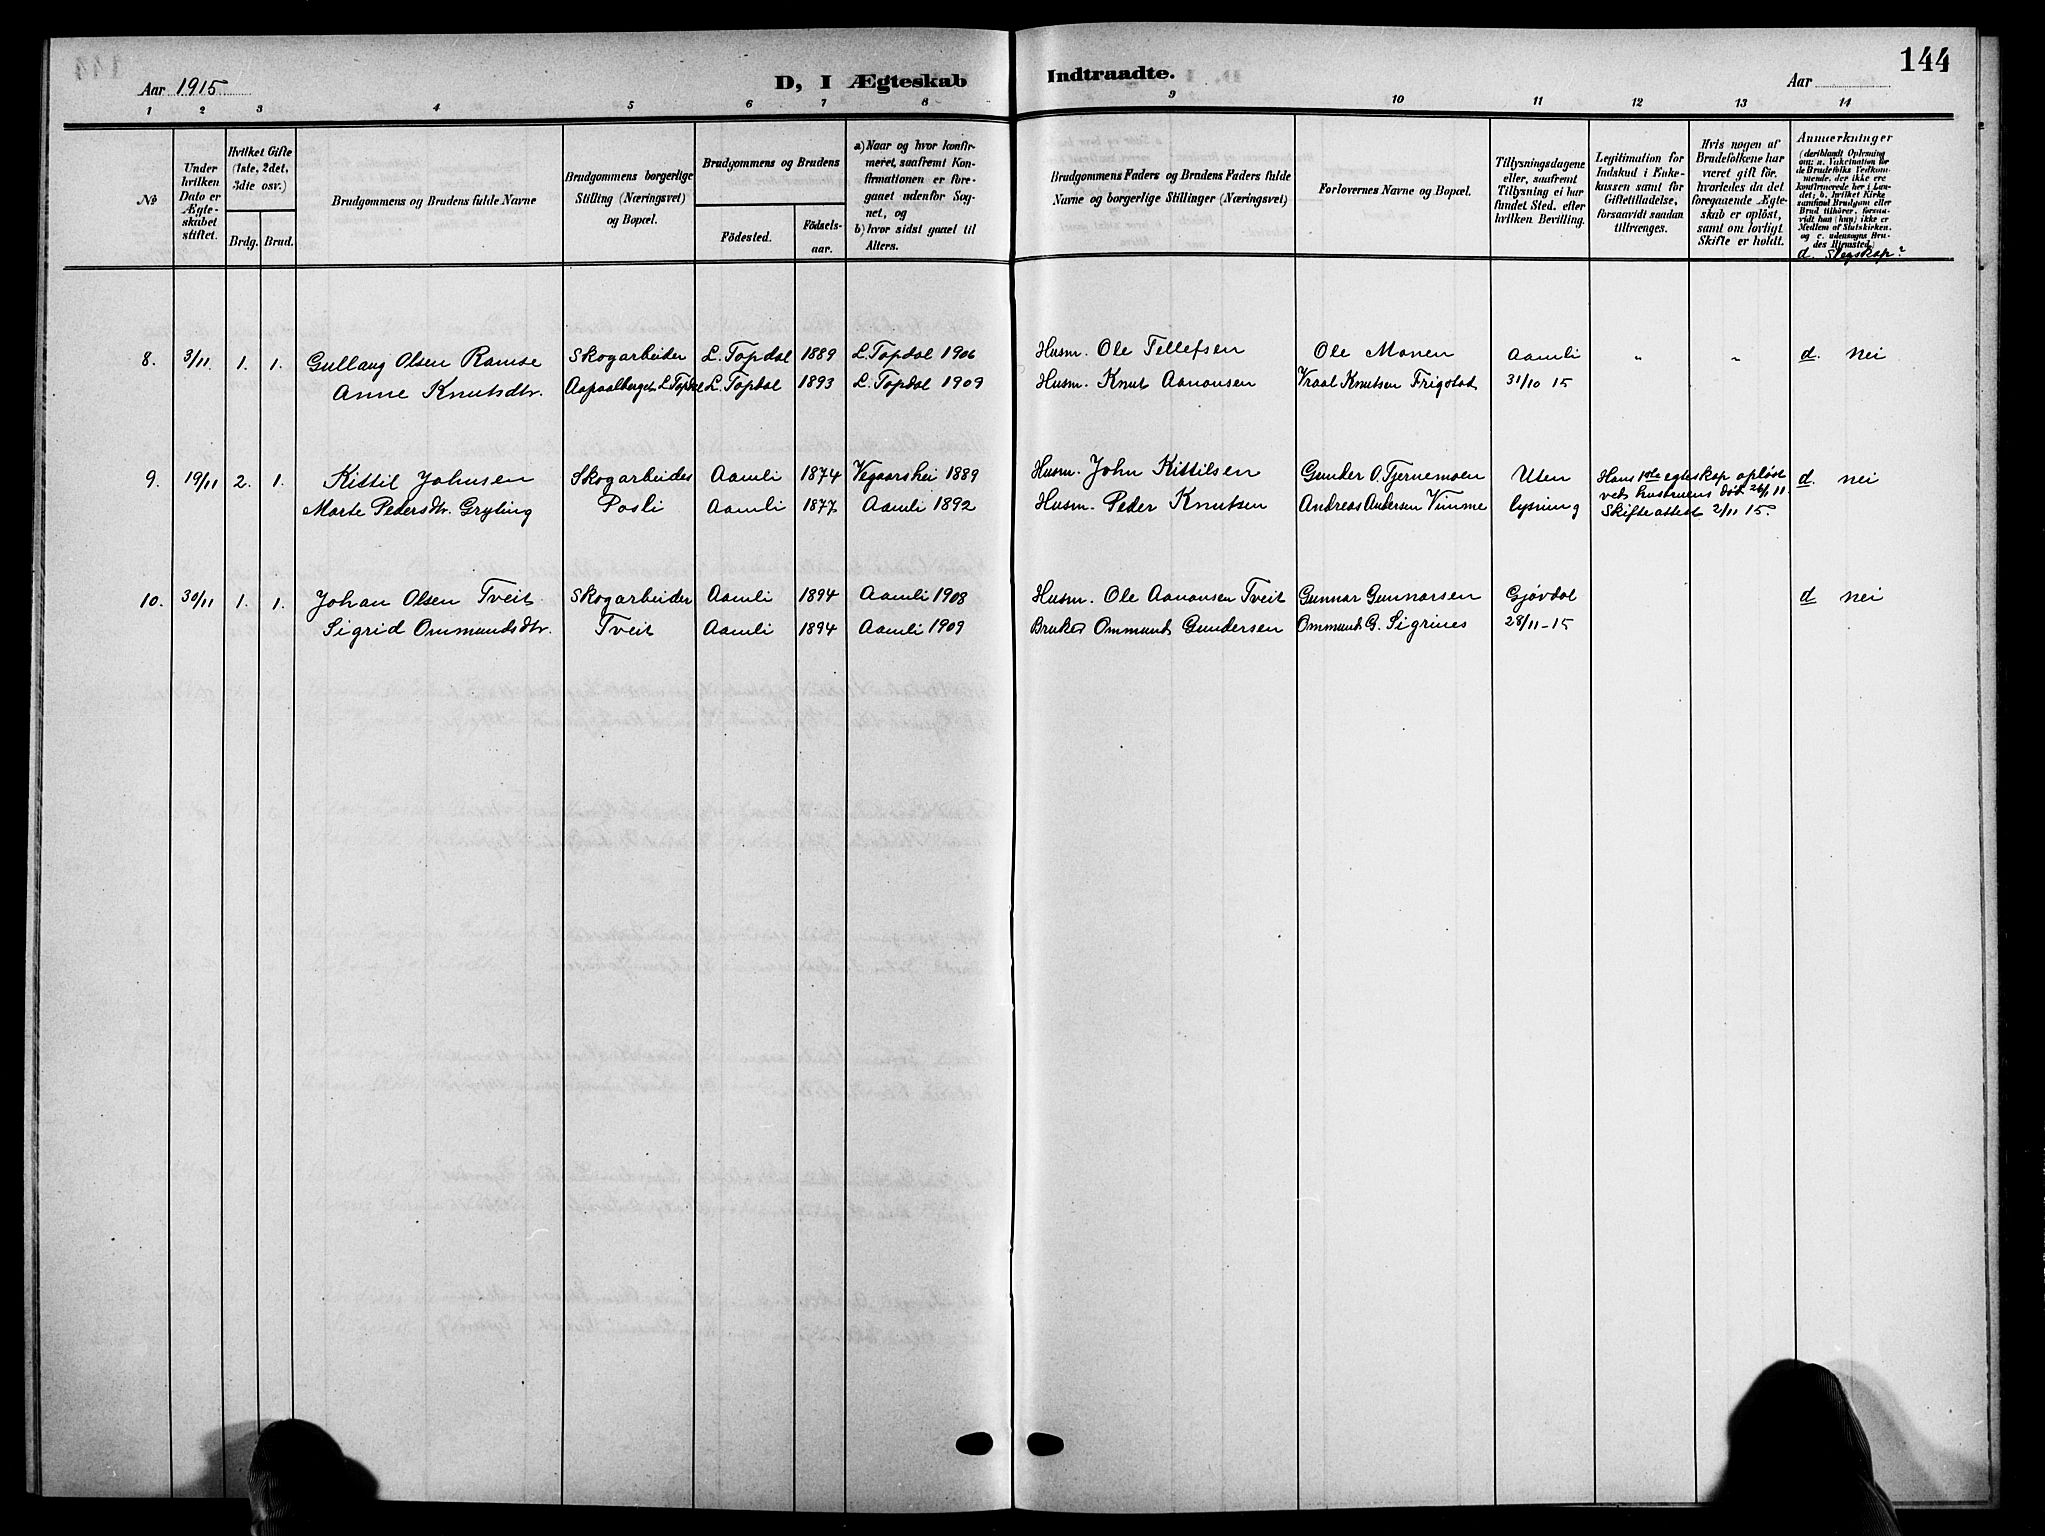 144
Aar 1915
D, I Ægteskab Indtraadte.
Aar
1 2 3 4 5 6 7 8 9 10 11 12 13 14
No
Under hvilken Dato er Ægteskabet stiftet.
Hvilket Gifte (1ste, 2det, 3dte osv.)
Brdg. Brud.
Brudgommens og Brudens fulde Navne
Brudgommens borgerlige Stilling (Næringsvei) og Bopæl.
Brudgommens og Brudens
Födested. Födselsaar.
a) Naar og hvor konfirmeret, saafremt Konfirmationen er foregaaet udenfor Sognet, og
b) hvor sidst gaaet til Alters.
Brudgommens Faders og Brudens Faders fulde Navne og borgerlige Stillinger (Næringsvei)
Forlovernes Navne og Bopæl.
Tillysningsdagene eller, saafremt Tillysning ei har fundet Sted, efter hvilken Bevilling.
Legitimation for Indskud i Enkekassen samt for Giftetilladelse, forsaavidt saadan tiltrænges.
Hvis nogen af Brudefolkene har været gift för, hvorledes da det foregaaende Ægteskab er oplöst, samt om lovligt Skifte er holdt.
Anmerkninger
(deriblandt Oplysning om: a. Vakcination for de Brudefolks Vedkommende, der ikke ere konfirmerede her i Landet; b. hvilket Kirkesamfund Brudgom eller Brud tilhörer, forsaavidt han (hun) ikke er Medlem af Statskirken, og c. udensogns Brudes Hjemsted.)
d. Slegskap?
8. 3/11. 1. 1. Gullaug Olsen Ramse Skogarbeider L. Topdal 1889 L. Topdal 1906 Husm. Ole Tellefsen Ole Monen Aamli „ „ d. nei
Anne Knutsdtr. L. Topdal L. Topdal 1893 L. Topdal 1909 Husm. Knut Aanonsen Vraal Knutsen Frigstad 31/10 15
9. 19/11 2. 1. Kittil Johnsen Skogarbeider Aamli 1874 Vegaarshei 1889 Husm. John Kittilsen Gunder O. Tjernemoen Uten Hans 1ste egteskap opløst d. nei
Marte Pedersdtr. Gryting Posli Aamli 1877 Aamli 1892 Husm. Peder Knutsen Andreas Andersen Vimme lysning ved hustruens død 26/1 11.
Skifteattest 2/11 15.
10. 30/11 1. 1. Johan Olsen Tveit Skogarbeider Aamli 1894 Aamli 1908 Husm. Ole Aanonsen Tveit Gunnar Gunnarsen Gjøvdal d nei
Sigrid Ommundsdtr. Tveit Aamli 1894 Aamli 1909 Bruker Ommund Gundersen Ommund G. Sigrines 28/11-15